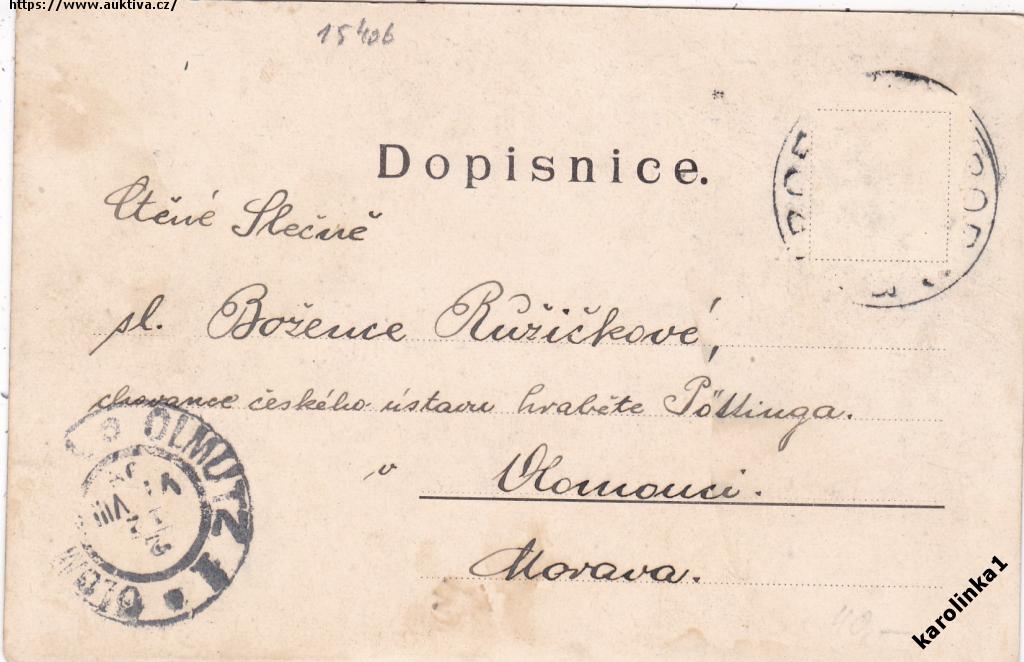 https://www.auktiva.cz/
15406
Dopisnice.
Ctěné Slečně
sl. Božence Růžičkové,
chovance českého ústavu hraběte Pöttinga.
v Olomouci.
Morava.
OLMÜTZ 1
karolinka1